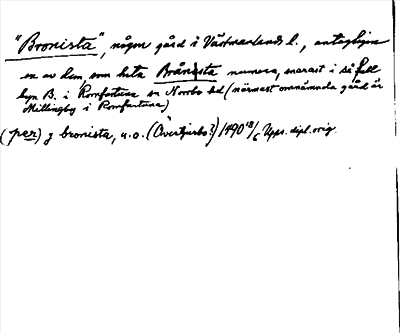 "Bronista", någon gård i Västmanlands l., antagligen
en av dem, som heta Brångsta numera, snarast i så fall
byn B. i Romfartuna sn Norrbo hd (närmast omnämnda gård är
Millingby i Romfartuna)
(per) j bronista, u.o. (Övertjurbo?) 1490 18/6 Upps. dipl. orig.